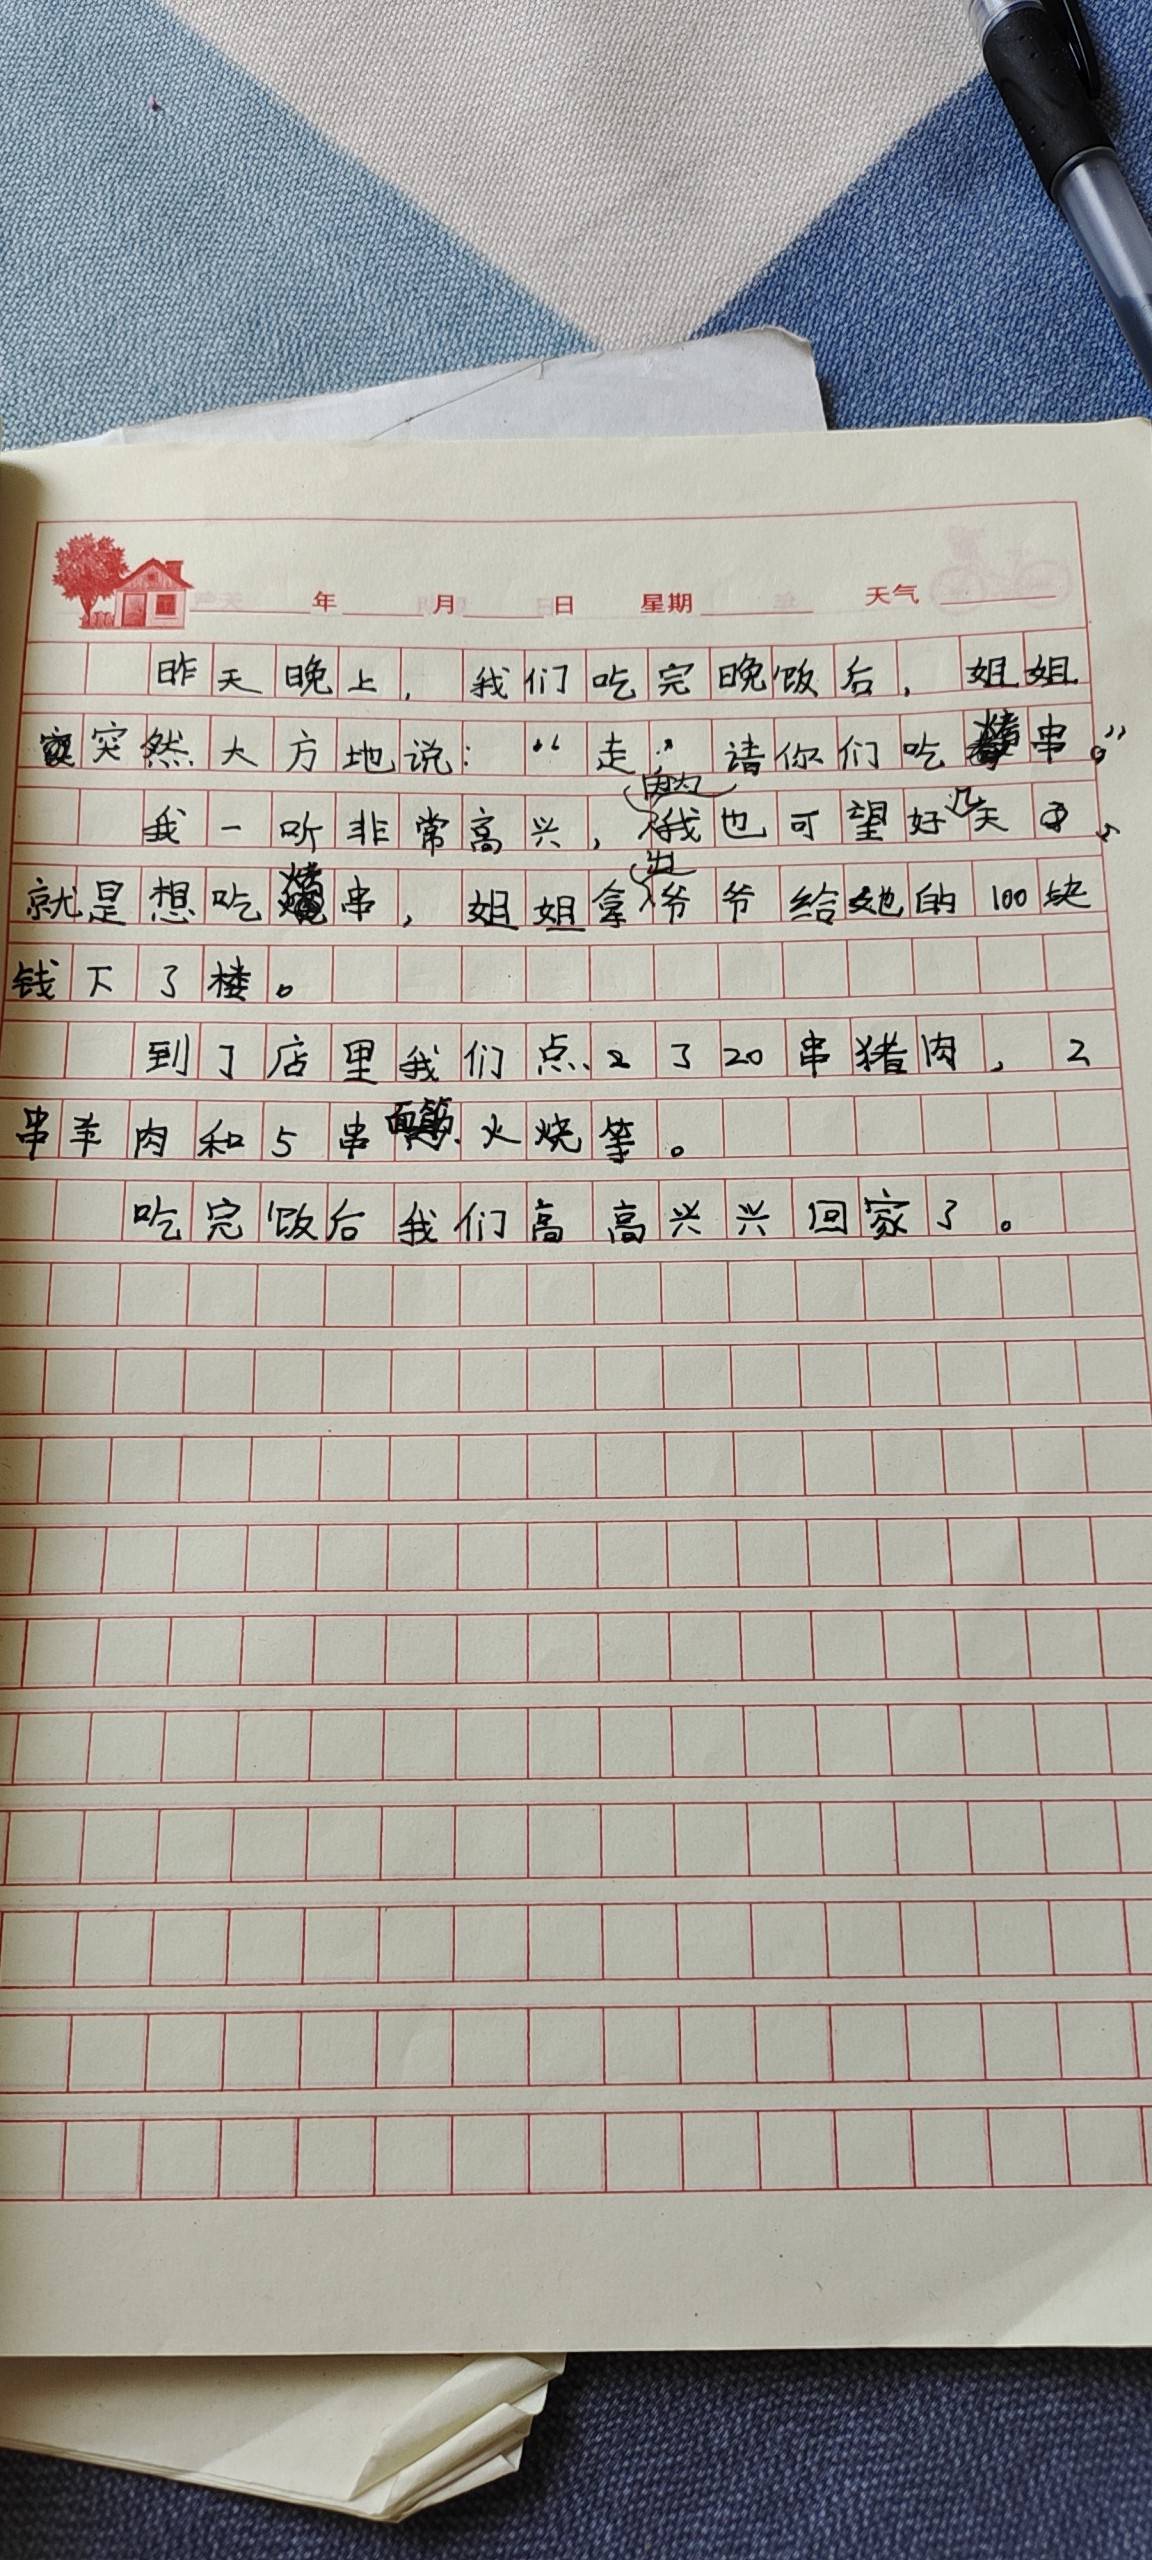 年 月 日 星期 天气
昨天晚上，我们吃完晚饭后，姐姐
突然大方地说：“走，请你们吃烤串。”
我一听非常高兴，因为我也可望好几天了，
就是想吃烤串，姐姐拿出爷爷给她的100块
钱下了楼。
到了店里我们点了20串猪肉，2
串羊肉和5串面筋、火烧等。
吃完饭后我们高高兴兴回家了。